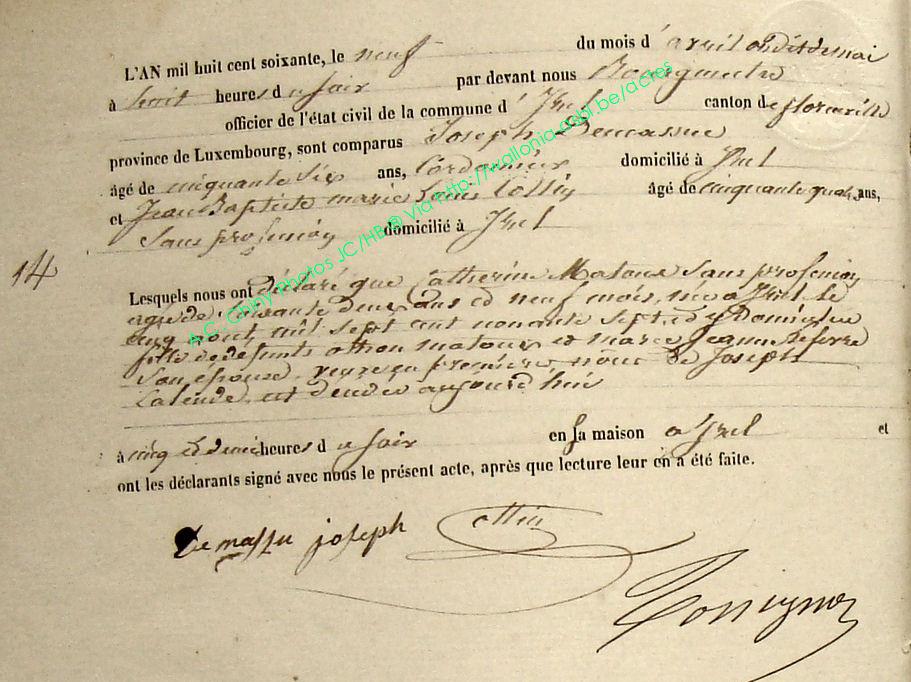 L'AN mil huit cent soixante, le neuf du mois d' avril on dit de mai
à huit heures d u soir par devant nous Bourgmestre
officier de l'état civil de la commune d' Izel canton de florenville
province de Luxembourg, sont comparus Joseph Demasse
âgé de cinquante six ans, Cordonnier domicilié à Izel
et Jean Baptiste marie Louis Collin âgé de cinquante quatre ans,
Sans profession domicilié à Izel
14
Lesquels nous ont déclaré que Catherine Matoux Sans profession
agée de soixante deux ans et neuf mois, née a Izel le
cinq aout mil sept cent nonante sept, et y Domiciliée
fille de defunts othon matoux et marie Jeanne Lefevre
Son épouse, veuve en première noce de Joseph
Lalende est décédée aujourd'hui
à cinq et demi heures d u soir en sa maison a Izel et
ont les déclarants signé avec nous le présent acte, après que lecture leur en a été faite.
De massu joseph Collin
A.C. Chiny photos JC/HB® via http://wallonia-asbl.be/actes